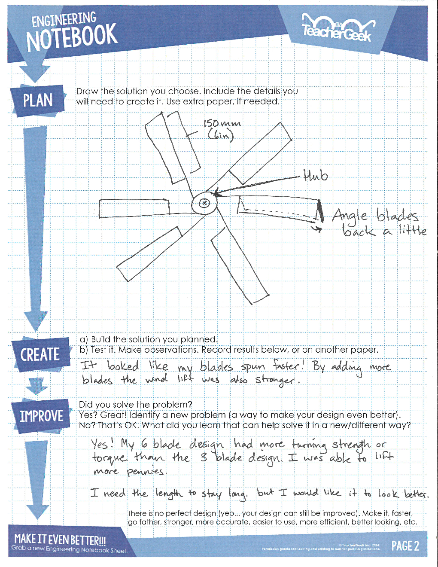 ENGINEERING
NOTEBOOK
TeacherGeek
PLAN
Draw the solution you choose. Include the details you
will need to create it. Use extra paper, if needed.
150mm
(6in)
Hub
Angle blades
back a little
CREATE
a) Build the solution you planned.
b) Test it. Make observations. Record results below, or on another paper.
It looked like my blades spun faster! By adding more
blades the wind lift was also stronger.
IMPROVE
Did you solve the problem?
Yes? Great! Identify a new problem (a way to make your design even better).
No? That's OK. What did you learn that can help solve it in a new/different way?
Yes! My 6 blade design had more turning strength or
torque than the 3 blade design. I was able to lift
more pennies.
I need the length to stay long, but I would like it to look better.
There is no perfect design (yep... your design can still be improved). Make it, faster,
go father, stronger, more accurate, easier to use, more efficient, better looking, etc.
MAKE IT EVEN BETTER!!!
Grab a new Engineering Notebook Sheet.
PAGE 2